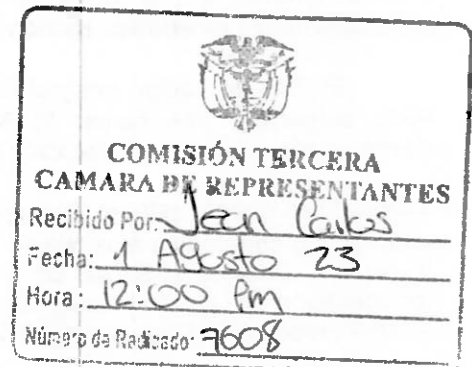 COMISIÓN TERCERA
CAMARA DE REPRESENTANTES
Recibido Por: Jean Carlos
Fecha: 1 Agosto 23
Hora: 12:00 pm
Número de Radicado: 7608